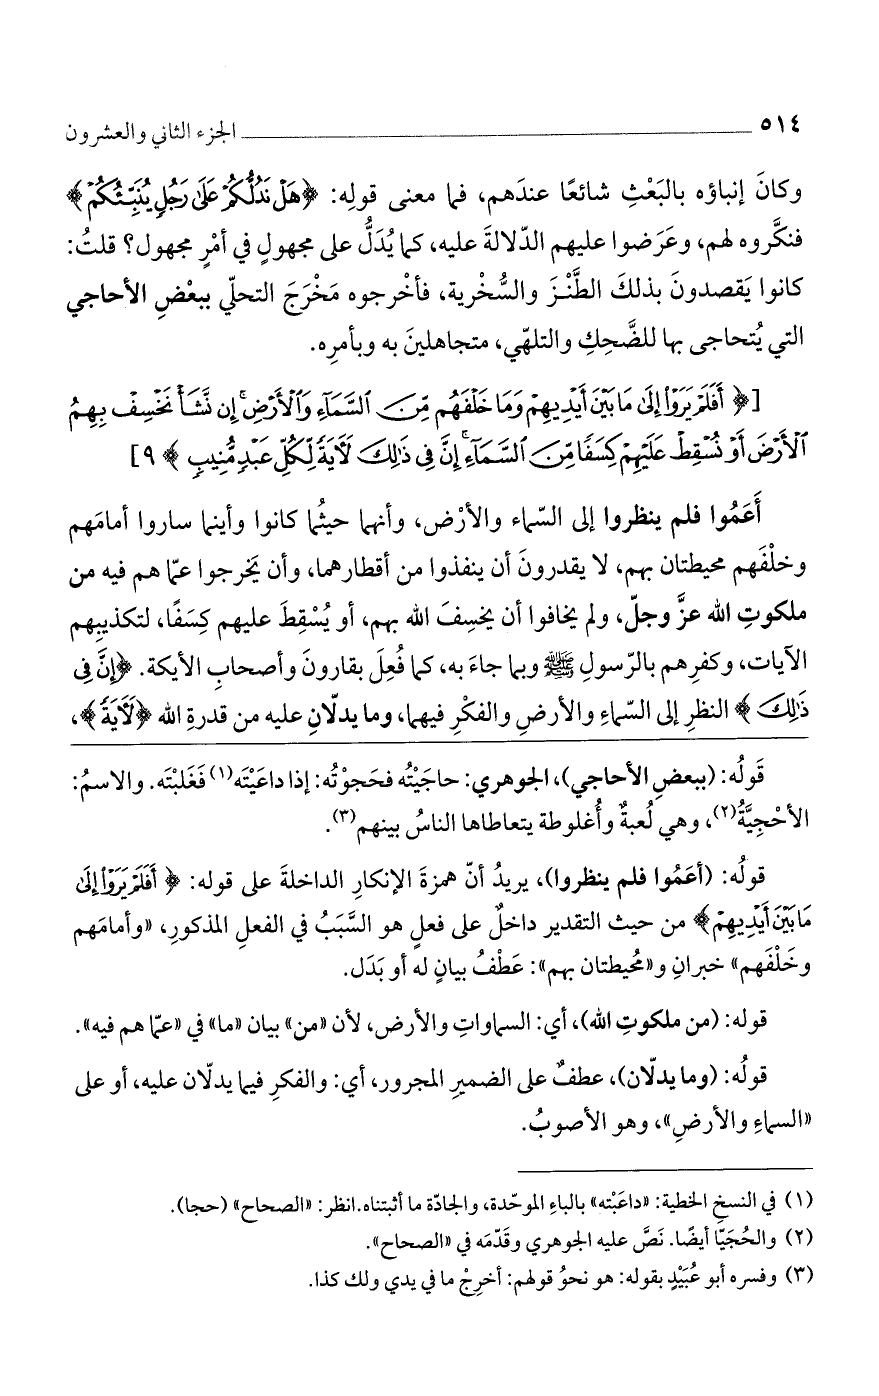 ٥١٤ الجزء الثاني والعشرون
وكانَ إنباؤه بالبَعْثِ شائعًا عندَهم، فما معنى قولِه: ﴿هَلْ نَدُلُّكُمْ عَلَىٰ رَجُلٍ يُنَبِّئُكُمْ﴾
فنكَّروه لهم، وعَرَضوا عليهم الدّلالةَ عليه، كما يُدَلُّ على مجهولٍ في أمْرٍ مجهول؟ قلتُ:
كانوا يَقصدونَ بذلكَ الطَّنْزَ والسُّخْرية، فأخْرجوه مَخْرَجَ التحلّي ببعْضِ الأحاجي
التي يُتحاجى بها للضَّحِكِ والتلهّي، متجاهلينَ به وبأمرِه.
[﴿أَفَلَمْ يَرَوْا۟ إِلَىٰ مَا بَيْنَ أَيْدِيهِمْ وَمَا خَلْفَهُم مِّنَ ٱلسَّمَآءِ وَٱلْأَرْضِ ۚ إِن نَّشَأْ نَخْسِفْ بِهِمُ
ٱلْأَرْضَ أَوْ نُسْقِطْ عَلَيْهِمْ كِسَفًا مِّنَ ٱلسَّمَآءِ ۚ إِنَّ فِى ذَٰلِكَ لَءَايَةً لِّكُلِّ عَبْدٍ مُّنِيبٍ﴾ ٩]
أَعَمُوا فلم ينظروا إلى السّماء والأرْض، وأنهما حيثُما كانوا وأينما ساروا أمامَهم
وخلْفَهم محيطتان بهم، لا يقدرونَ أن ينفذوا من أقطارهما، وأن يَخرجوا عمّا هم فيه من
ملكوتِ الله عزَّ وجلّ، ولم يخافوا أن يخسِفَ الله بهم، أو يُسْقِطَ عليهم كِسَفًا، لتكذيبِهم
الآيات، وكفرِهم بالرّسولِ ﷺ وبما جاءَ به، كما فُعِلَ بقارونَ وأصحابِ الأيكة. ﴿إِنَّ فِى
ذَٰلِكَ﴾ النظرِ إلى السّماءِ والأرضِ والفكْرِ فيهما، وما يدلّانِ عليه من قدرةِ الله ﴿لَءَايَةً﴾،
قَولُه: (ببعضِ الأحاجي)، الجوهري: حاجَيْتُه فحَجوْتُه: إذا داعَيْتَه(١) فَغَلبْتَه. والاسمُ:
الأحْجِيَّةُ(٢)، وهي لُعبةٌ وأُغلوطة يتعاطاها الناسُ بينهم(٣).
قولُه: (أعَمُوا فلم ينظروا)، يريدُ أنّ همزةَ الإنكارِ الداخلةَ على قوله: ﴿أَفَلَمْ يَرَوْا۟ إِلَىٰ
مَا بَيْنَ أَيْدِيهِمْ﴾ من حيث التقدير داخلٌ على فعلٍ هو السَّبَبُ في الفعلِ المذكورِ، «وأمامَهم
وخَلْفَهم» خبرانِ و«مُحيطتان بهم»: عَطْفُ بيانٍ له أو بَدَل.
قوله: (من ملكوتِ الله)، أي: السماواتِ والأرض، لأن «من» بيان «ما» في «عمّا هم فيه».
قولُه: (وما يدلّان)، عطفٌ على الضميرِ المجرور، أي: والفكرِ فيما يدلّان عليه، أو على
«السماءِ والأرضِ»، وهو الأصوبُ.
(١) في النسخ الخطية: «داعَبْته» بالباءِ الموحّدة، والجادّة ما أثبتناه. انظر: «الصحاح» (حجا).
(٢) والحُجَيّا أيضًا. نَصَّ عليه الجوهري وقَدّمَه في «الصحاح».
(٣) وفسره أبو عُبَيْدٍ بقوله: هو نحوُ قولهم: أخرِجْ ما في يدي ولك كذا.